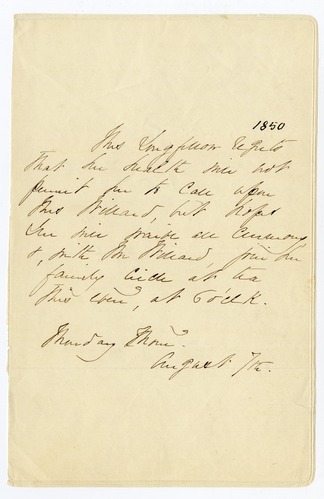 1850
Mrs Longfellow regrets
that her health will not
permit her to call upon
Mrs Willard, but hopes
she will waive all ceremony
&, with Mr Willard, join her
family circle at tea
this eveng, at 6 o'clk.
Monday Morng.
August 7th.